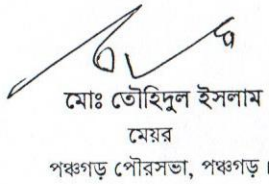 মোঃ তৌহিদুল ইসলাম
মেয়র
পঞ্চগড় পৌরসভা, পঞ্চগড়।